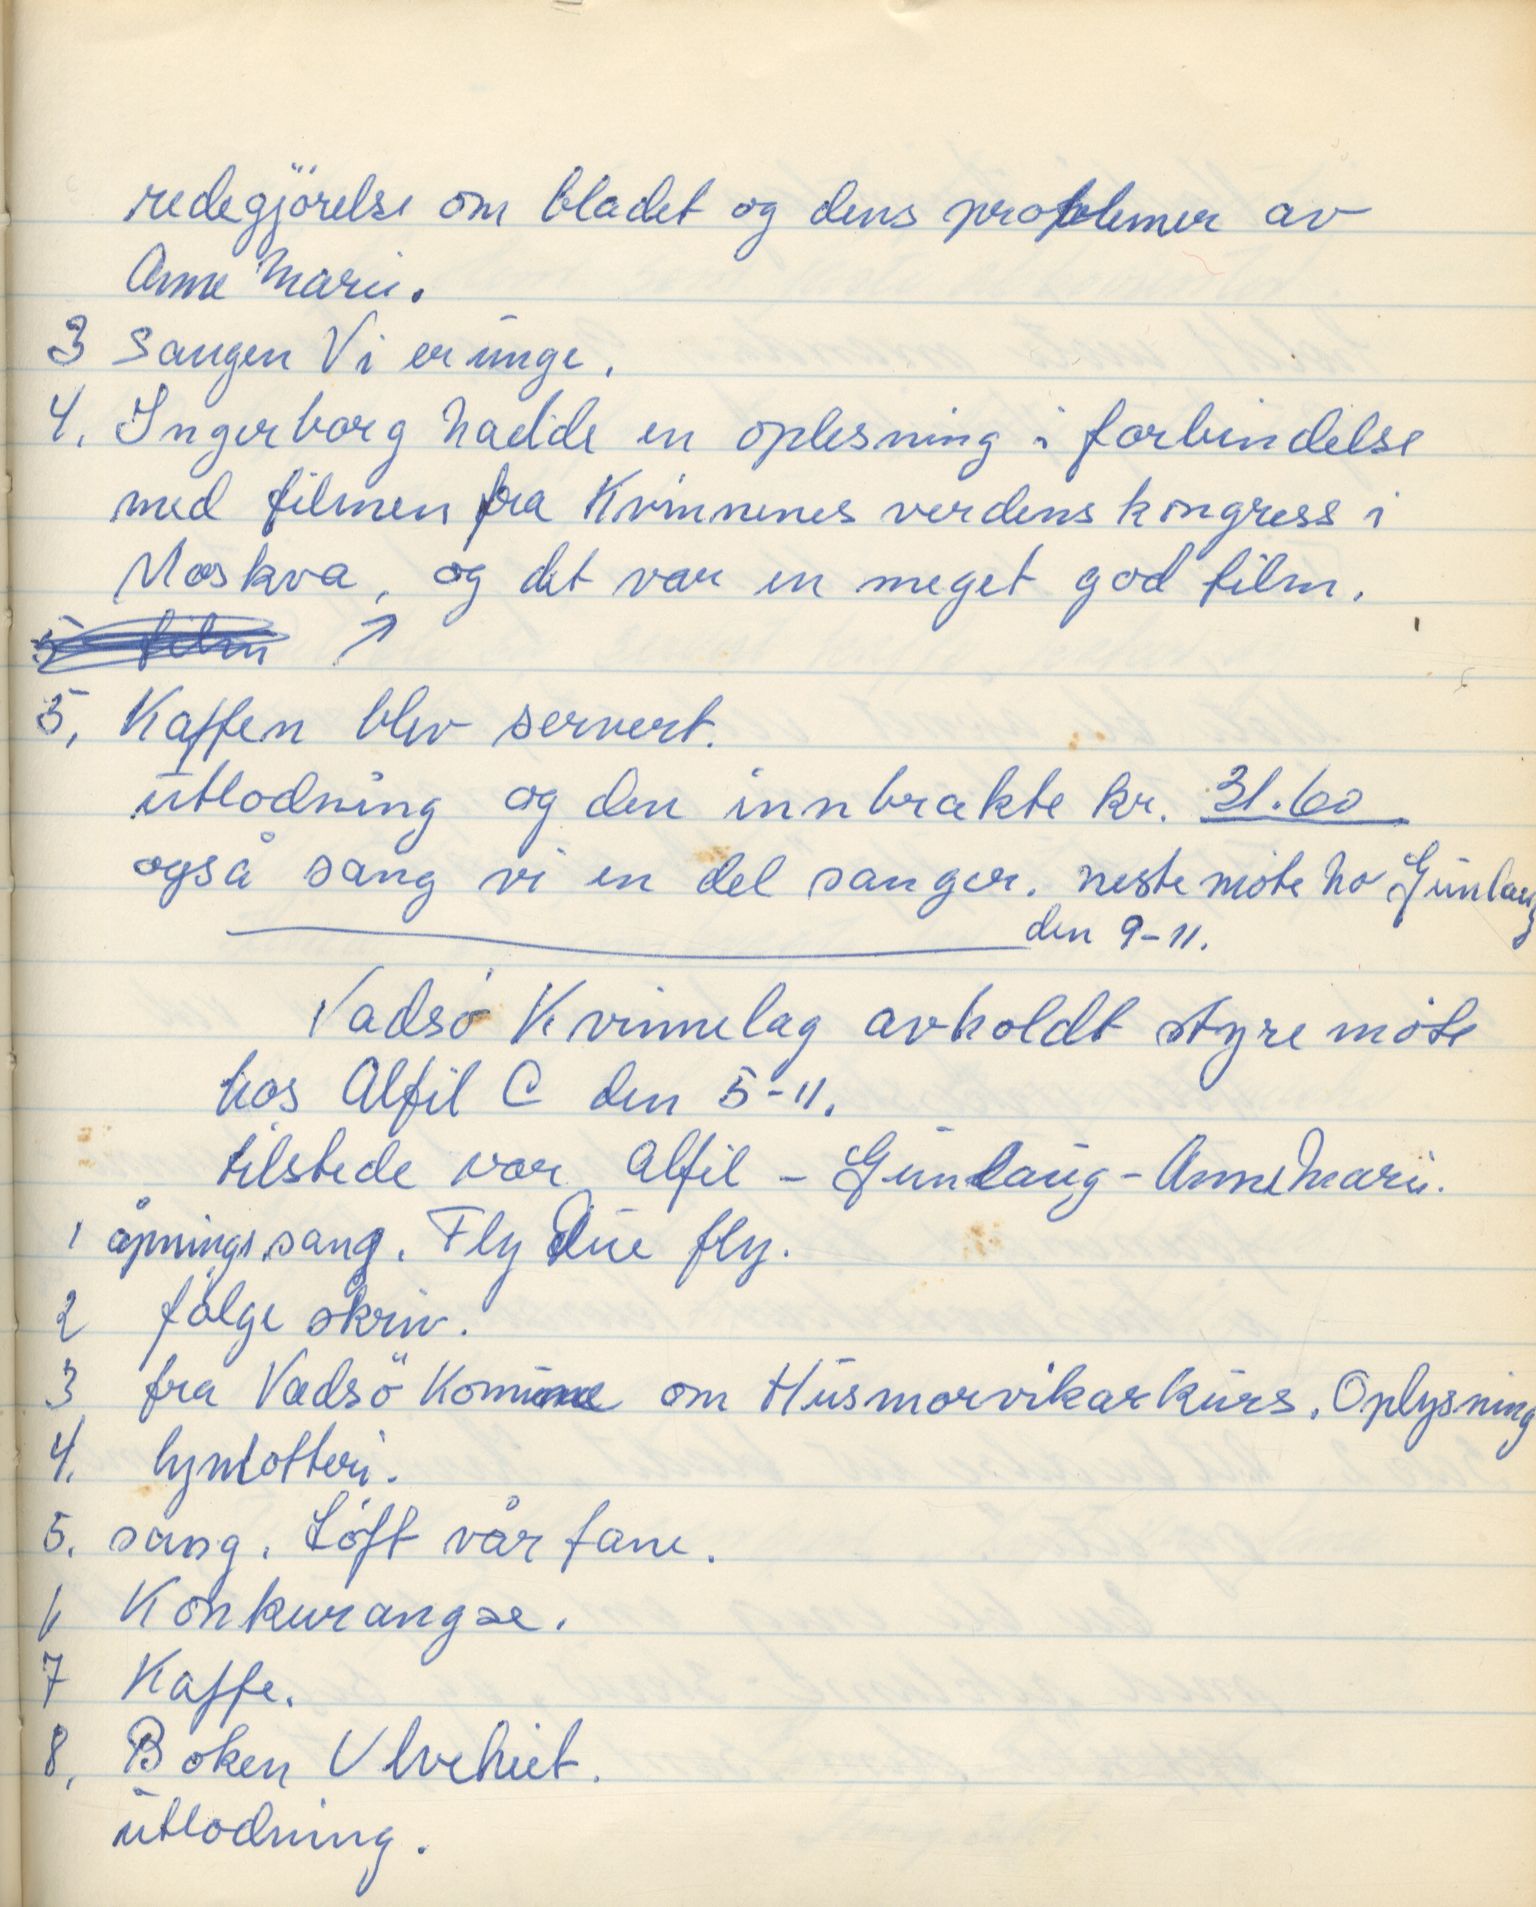 redegjörelse om bladet og dens problemer av
Anne Marie.
3 Sangen Vi er unge.
4. Ingerborg hadde en oplesning i forbindelse
med filmen fra Kvinnenes verdens kongress i
Moskva, og det var en meget god film.
5 film ↗
5, Kaffen blev servert.
utlodning og den innbrakte kr. 31.60
også sang vi en del sanger. neste möte ho Gunlaug
den 9-11.
Vadsö Kvinnelag avholdt styre möte
hos Alfil C den 5-11.
tilstede var Alfil - Gunlaug - Anne Marie.
1 åpnings sang. Fly Due fly.
2 følge skriv.
3 fra Vadsö Komune om Husmorvikarkurs. Oplysning
4. lynlotteri.
5. sang. Löft vår fane.
6 Konkurangse.
7 Kaffe.
8, Boken Ulvehiet.
utlodning.